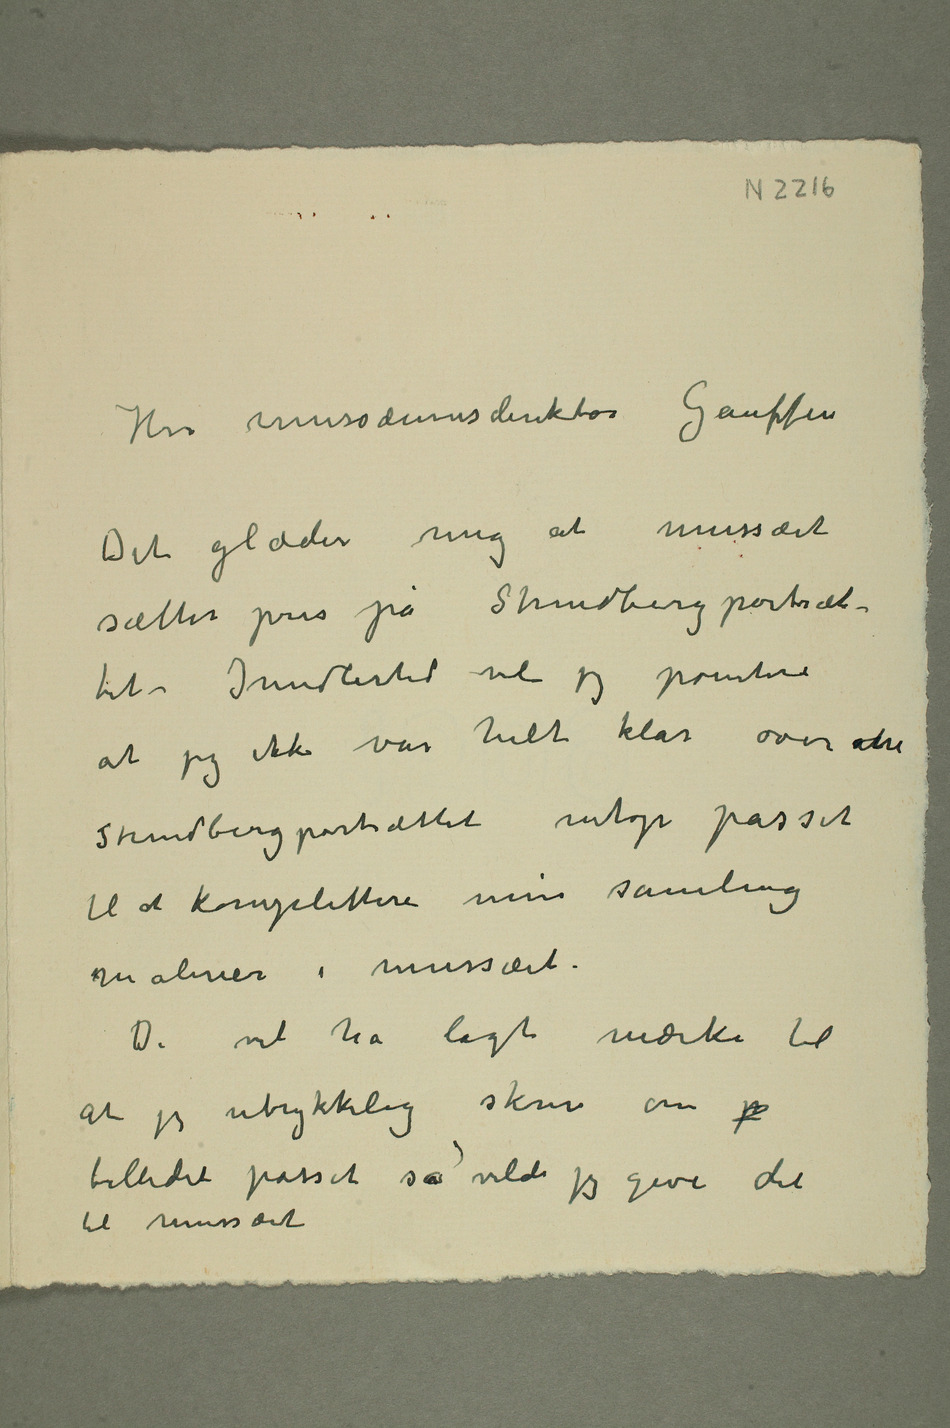 N 2216
Herr musæumsdirektør Gauffin
Det glæder mig at mussæet
sætter pris på Strindbergportræt-
tet – Imidlertid vil jeg pointere
at jeg ikke var helt klar over
Strindbergportrættet netop passet
til at komplettere min samling
malerier i mussæet.
De vil ha lagt mærke til
at jeg utrykkelig skrev om
billedet passet så vilde jeg give det
til mussæet